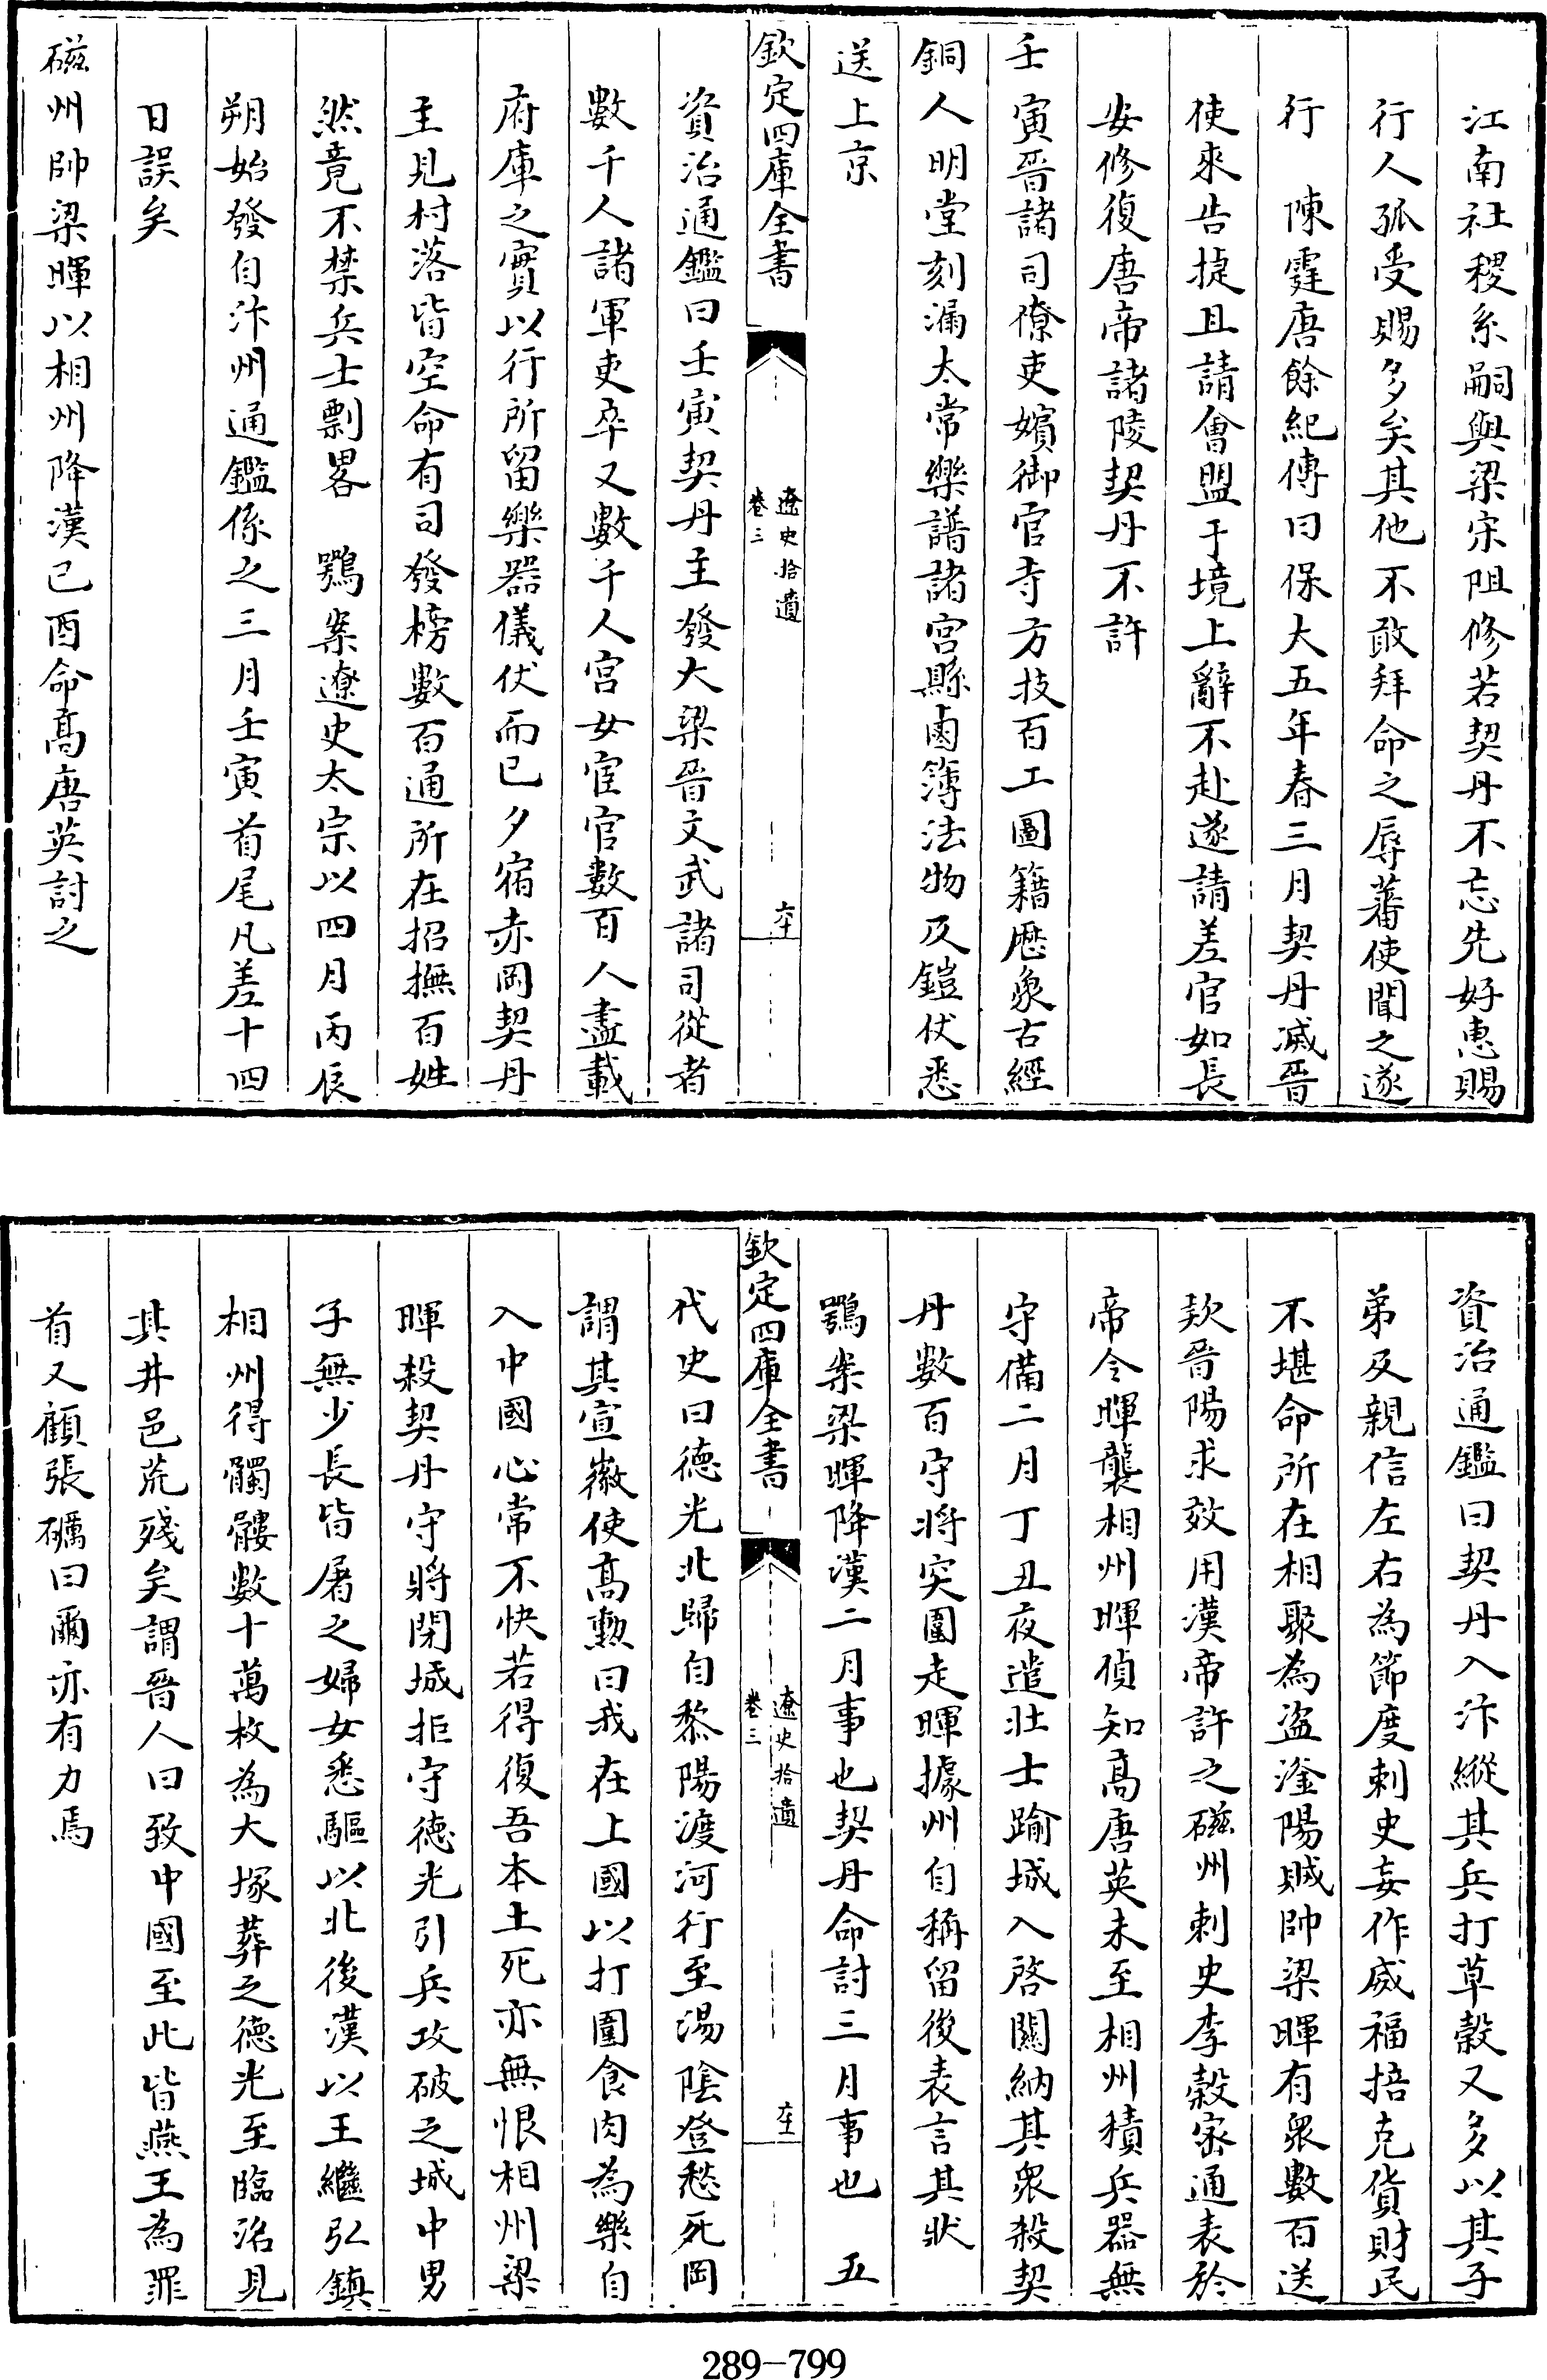 江南社稷系嗣與梁宋阻修若契丹不忘先好惠賜
行人孤受賜多矣其他不敢拜命之辱蕃使聞之遂
行　陳霆唐餘紀傳曰保大五年春三月契丹滅晉
使來告捷且請會盟于境上辭不赴遂請差官如長
安修復唐帝諸陵契丹不許
壬寅晉諸司僚吏嬪御宦寺方技百工圖籍歴象古經
銅人明堂刻漏太常樂譜諸宮縣鹵簿法物及鎧仗悉
送上京
欽定四庫全書
遼史拾遺
卷三
六十
資治通鑑曰壬寅契丹主發大梁晉文武諸司從者
數千人諸軍吏卒又數千人宮女宦官數百人盡載
府庫之實以行所留樂器儀仗而已夕宿赤岡契丹
主見村落皆空命有司發榜數百通所在招撫百姓
然竟不禁兵士剽畧　鶚案遼史太宗以四月丙辰
朔始發自汴州通鑑係之三月壬寅首尾凡差十四
日誤矣
磁州帥梁暉以相州降漢己酉命髙唐英討之
資治通鑑曰契丹入汴縱其兵打草穀又多以其子
弟及親信左右為節度刺史妄作威福掊克貨財民
不堪命所在相聚為盗滏陽賊帥梁暉有衆數百送
欵晉陽求效用漢帝許之磁州刺史李穀密通表於
帝令暉襲相州暉偵知髙唐英未至相州積兵器無
守備二月丁丑夜遣壯士踰城入啓關納其衆殺契
丹數百守將突圍走暉據州自稱留後表言其狀
鶚案梁暉降漢二月事也契丹命討三月事也　五
欽定四庫全書
遼史拾遺
卷三
代史曰德光北歸自黎陽渡河行至湯陰登愁死岡
謂其宣徽使髙勲曰我在上國以打圍食肉為樂自
入中國心常不快若得復吾本土死亦無恨相州梁
暉殺契丹守將閉城拒守德光引兵攻破之城中男
子無少長皆屠之婦女悉驅以北後漢以王繼弘鎮
相州得髑髏數十萬枚為大塚葬之德光至臨洺見
其井邑荒殘矣謂晉人曰致中國至此皆燕王為罪
首又顧張礪曰爾亦有力焉
289-799